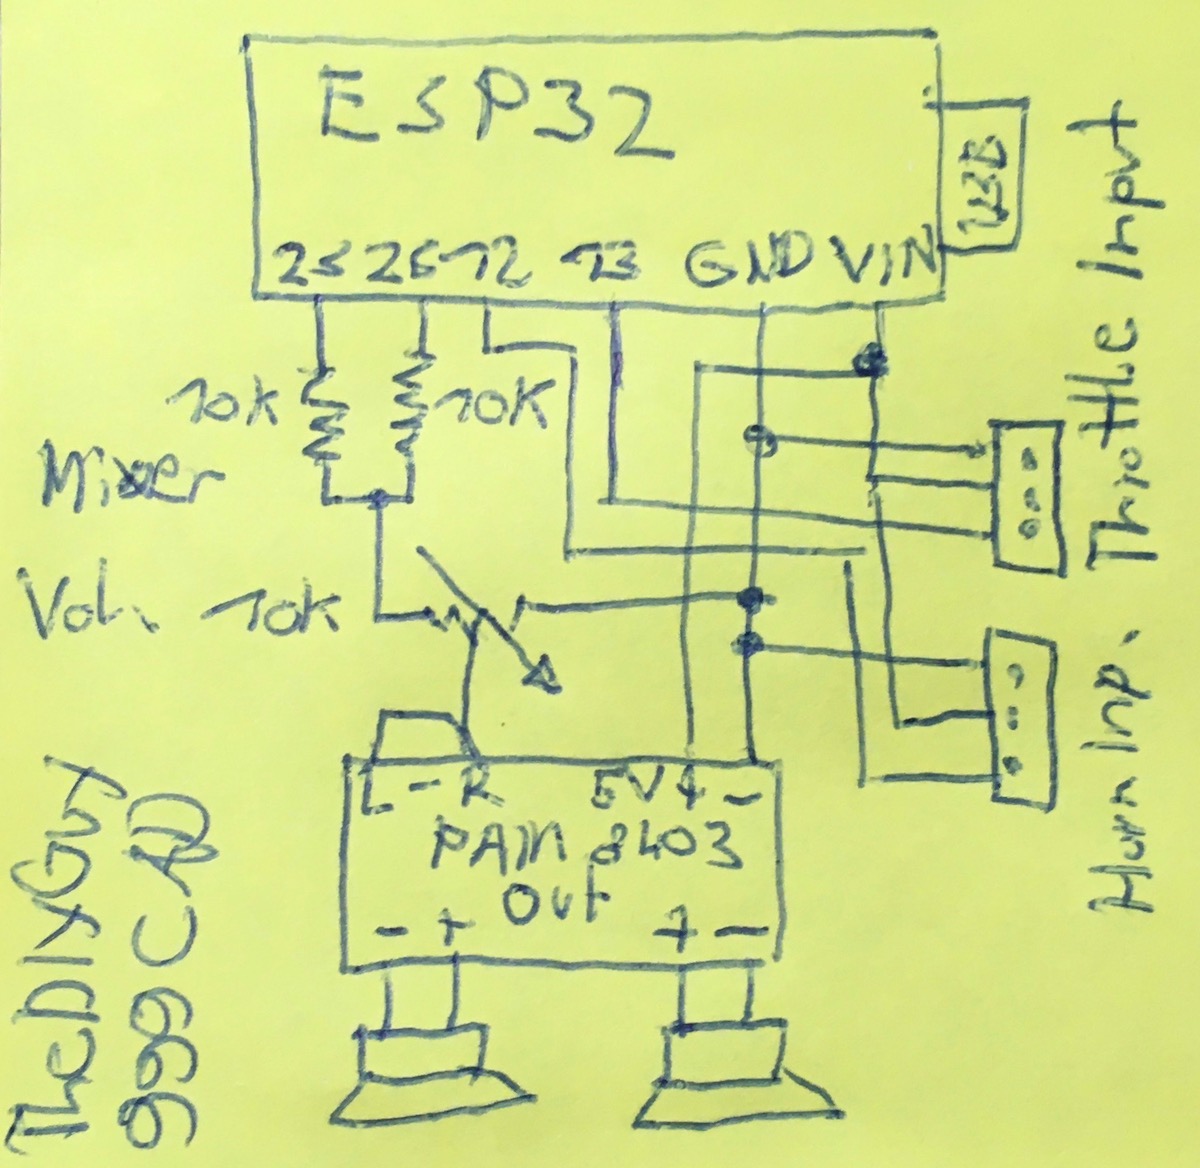 ESP32
USB
25 26 12 13 GND VIN
10k
10K
Mixer
Vol. 10k
Throttle Input
Horn Inp.
L - R 5V + -
PAM 8403
Out
- + + -
TheDIYGuy
999 CAD